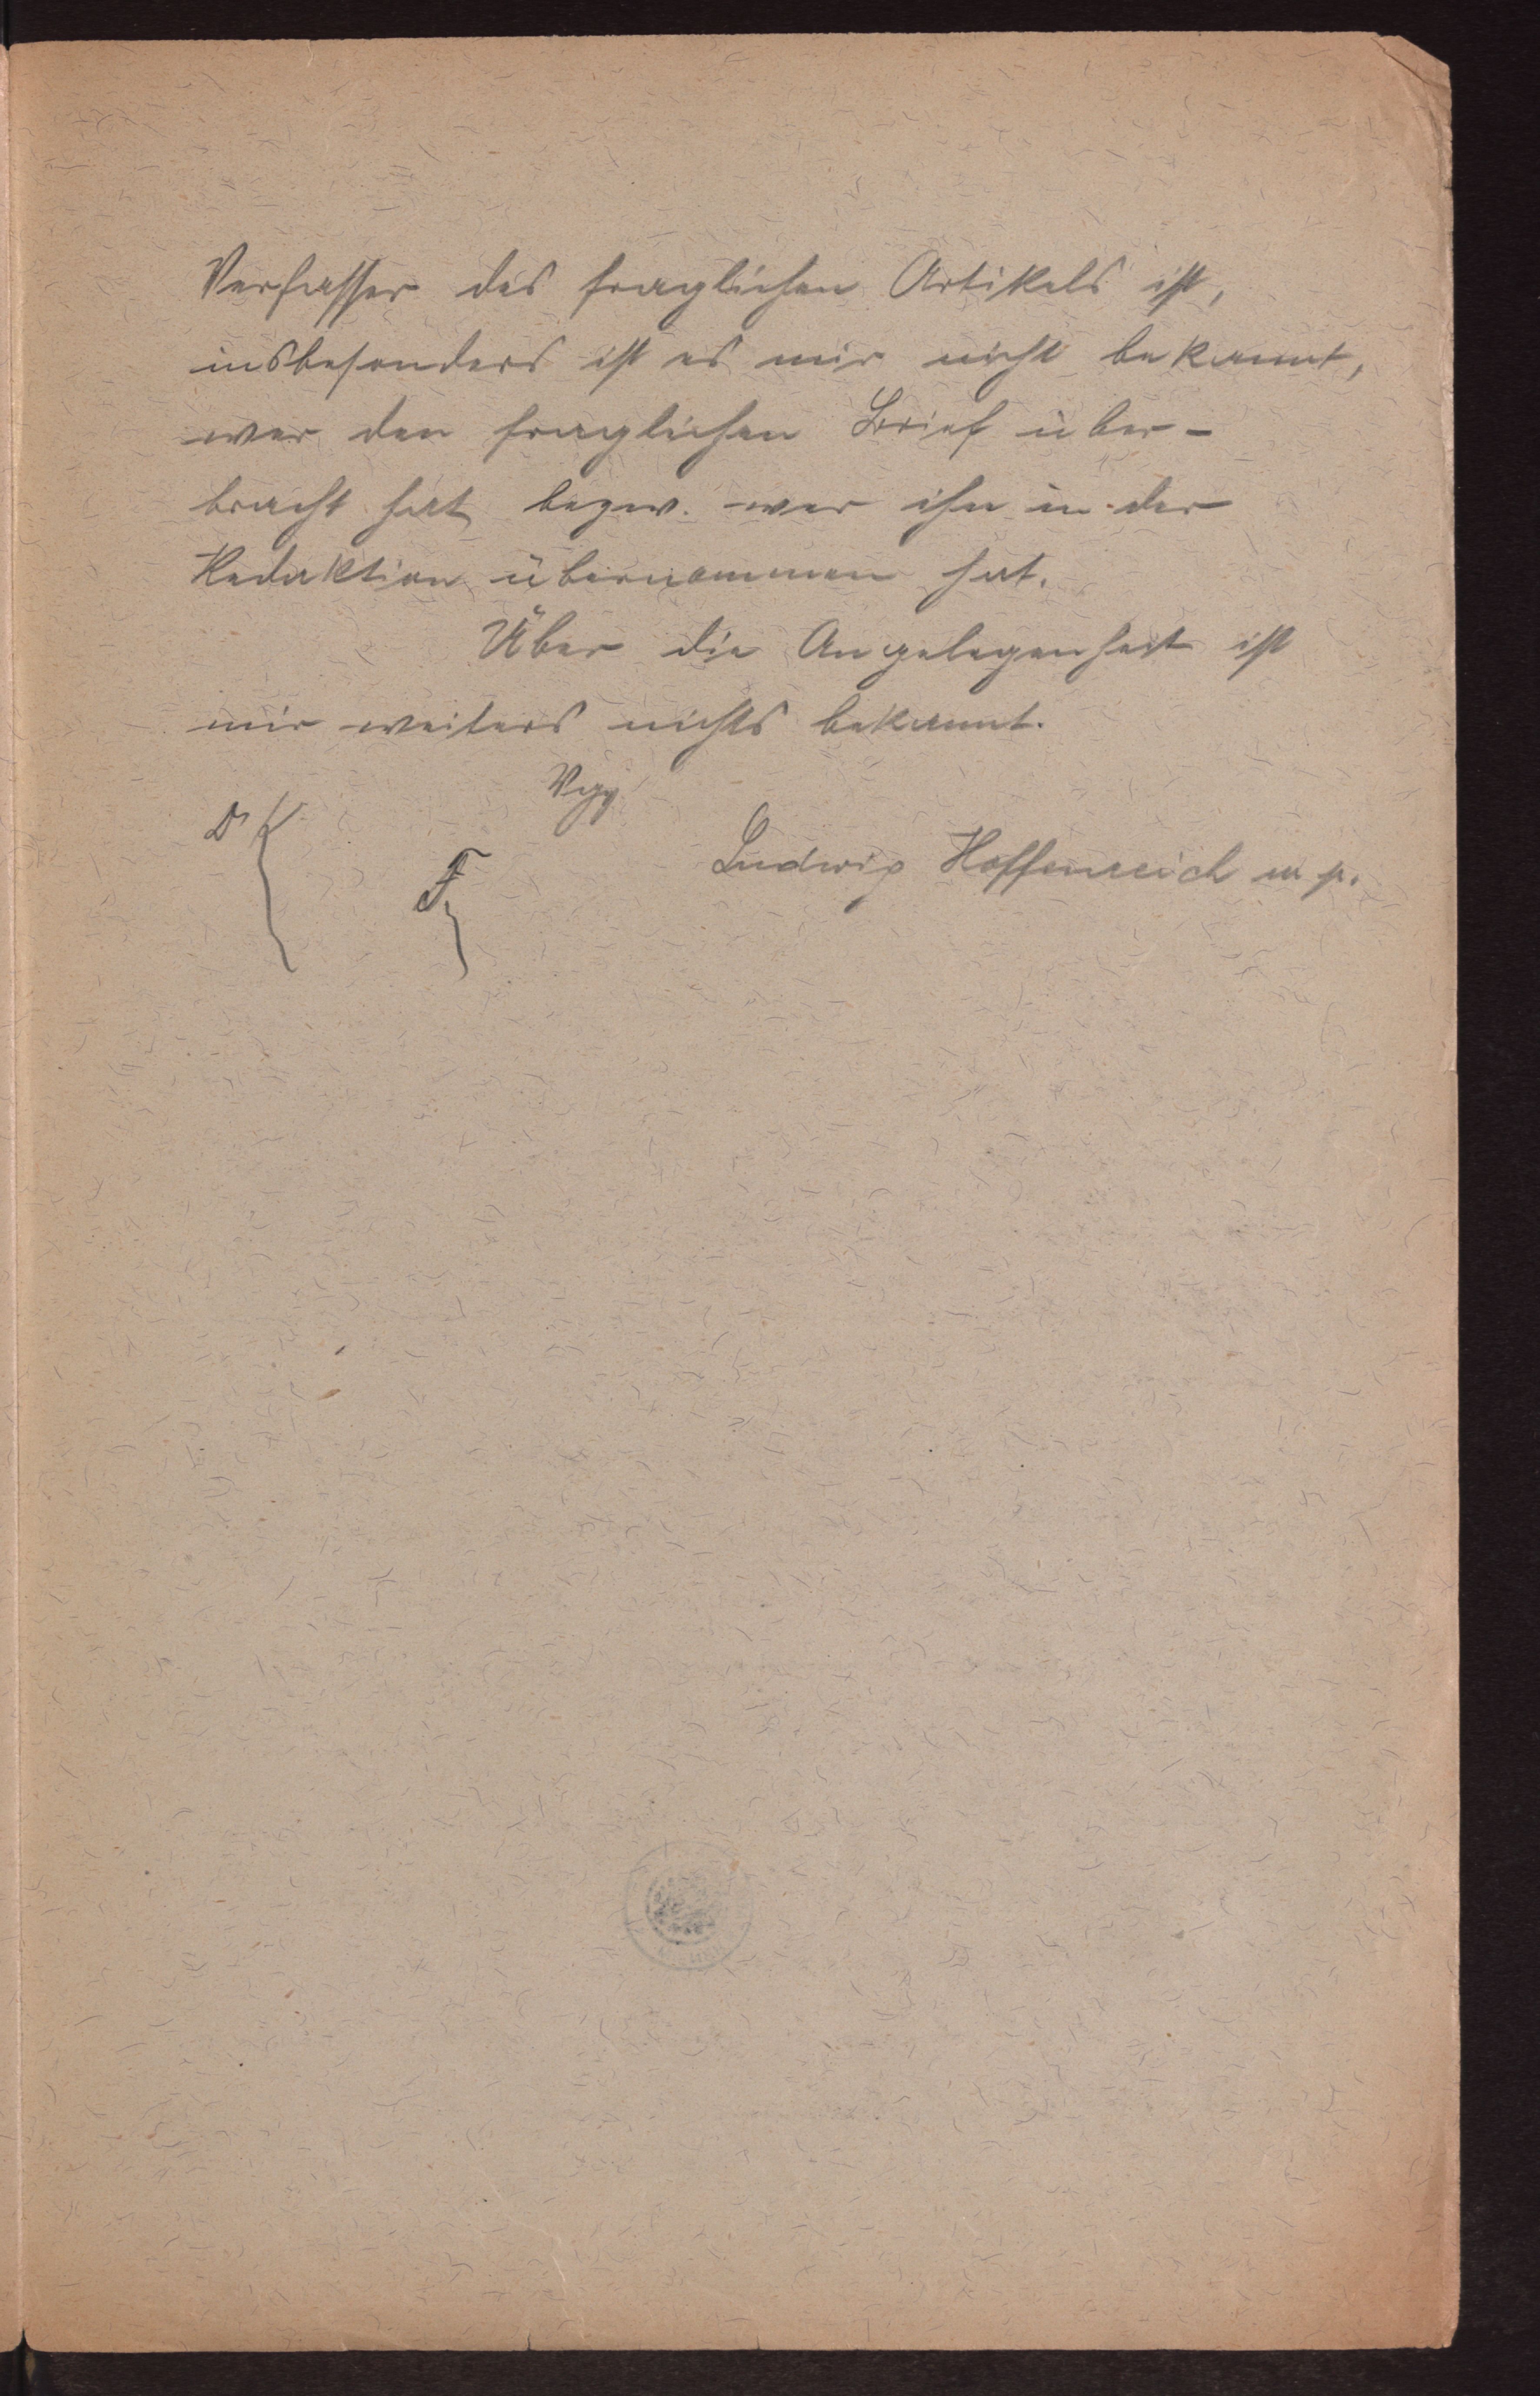 Verfasser des fraglichen Artikels ist,
insbesonders ist es mir nicht bekannt,
wer den fraglichen Brief über-
bracht hat bezw. wer ihn in der
Redaktion übernommen hat.
Über die Angelegenheit ist
mir weiters nichts bekannt.
Vgg
Ludwig Hoffenreich m p.